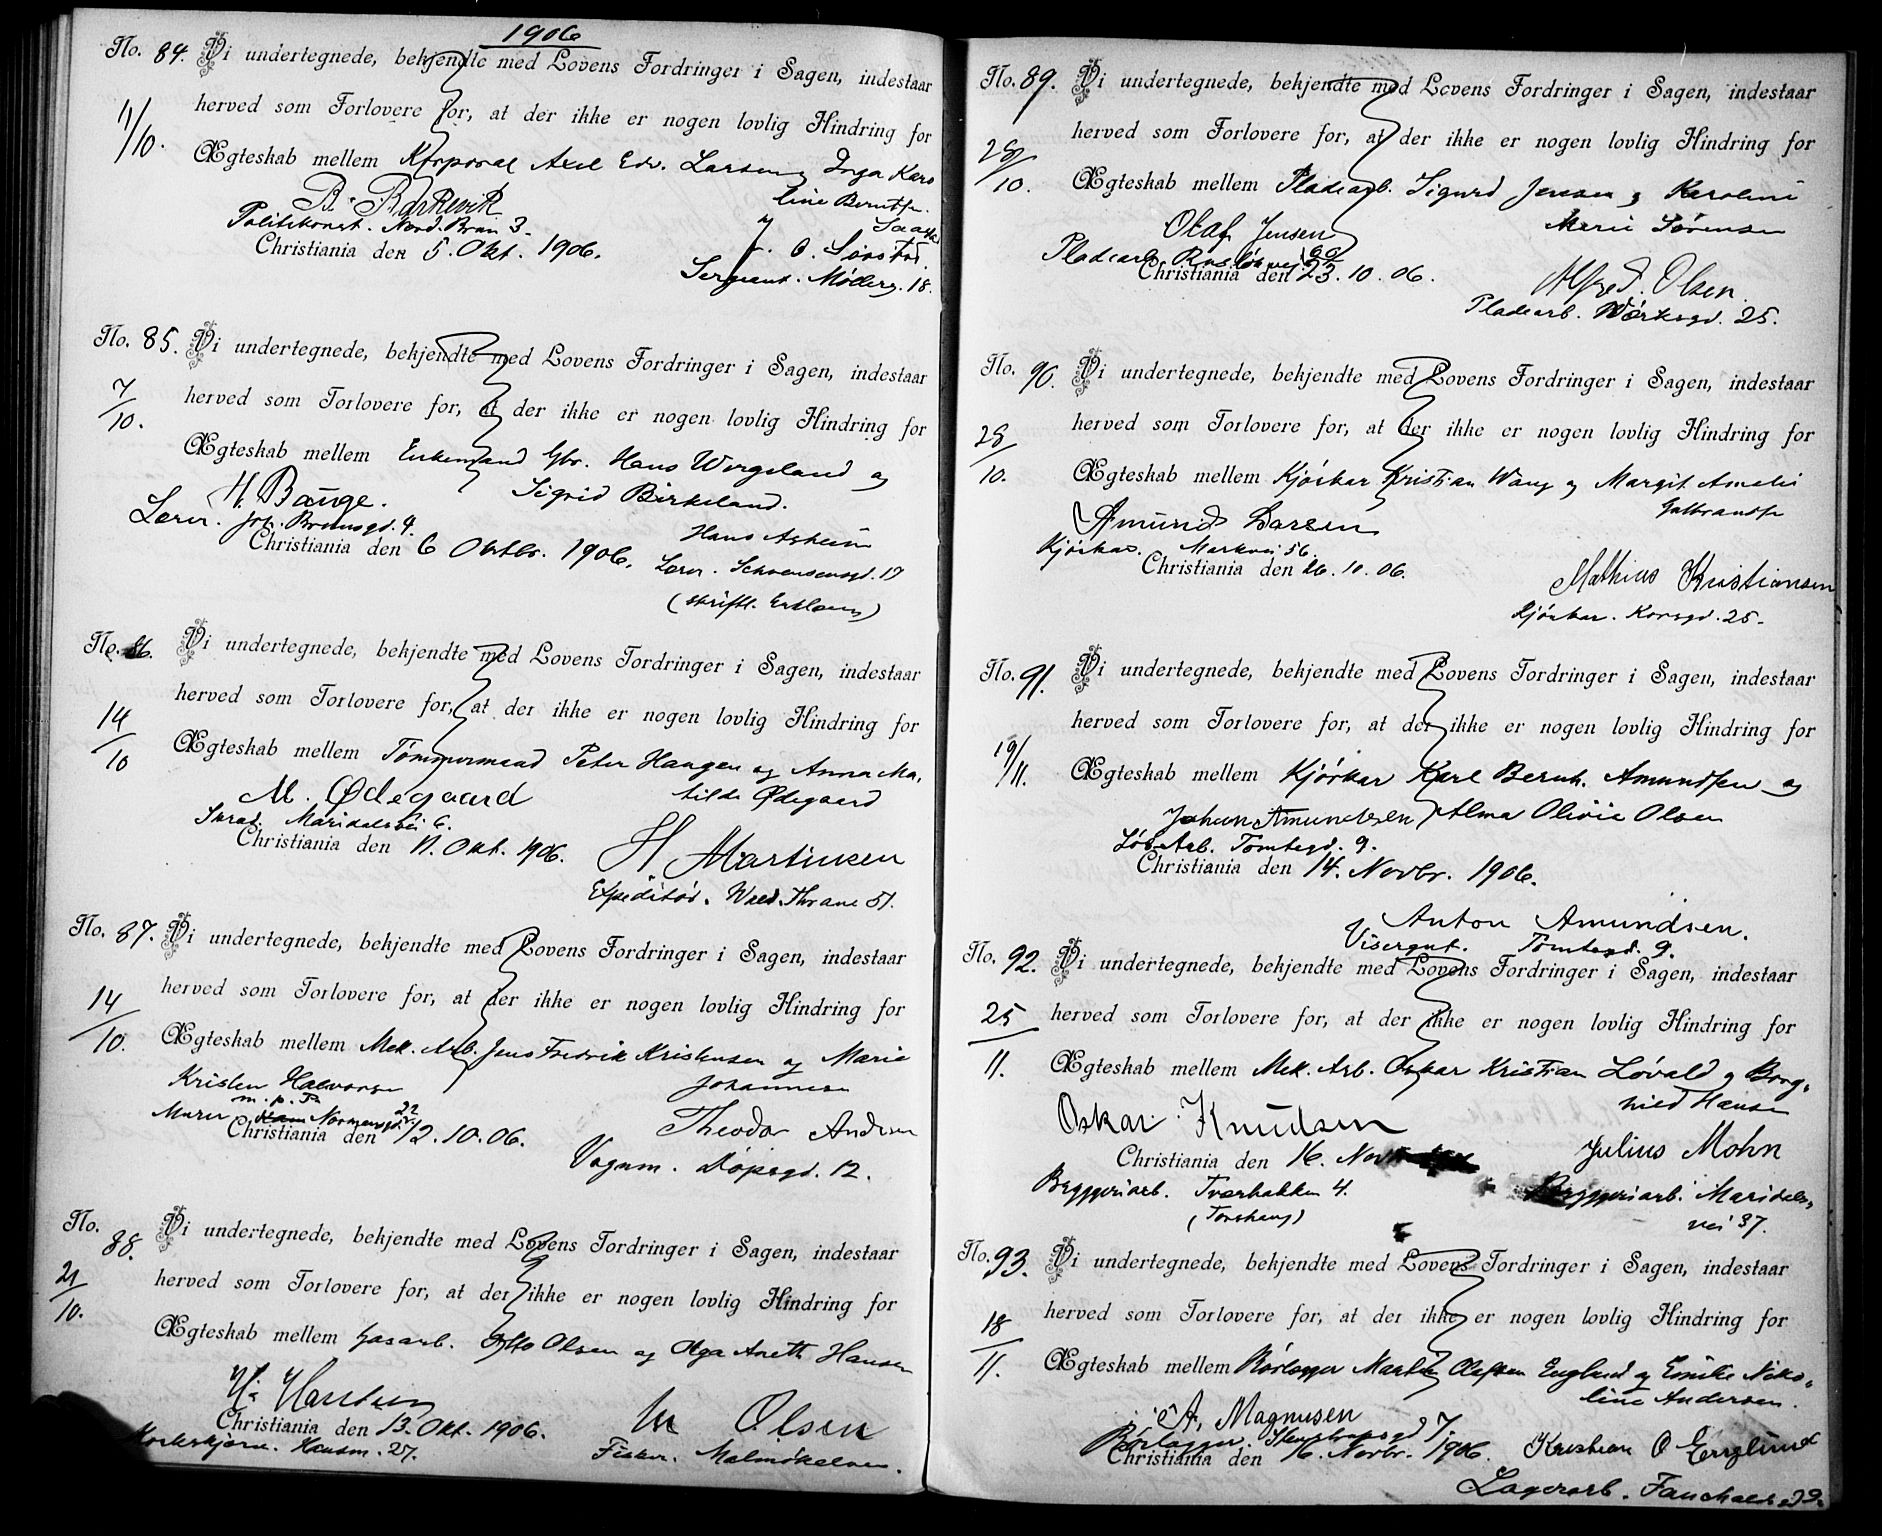 1906
No. 84. Vi undertegnede, bekjendte med Lovens Fordringer i Sagen, indestaar
11/10. herved som Forlovere for, at der ikke er nogen lovlig Hindring for
Ægteskab mellem Korporal Axel Edv. Larsen og Inga Karo
line Berntsen
B. Barkevik
Politikonst. Nord. Brun 3.
Christiania den 5. Okt. 1906.
Sergeant. Møllerg. 18.
No. 85. Vi undertegnede, bekjendte med Lovens Fordringer i Sagen, indestaar
7/10. herved som Forlovere for, at der ikke er nogen lovlig Hindring for
Ægteskab mellem Enkemand Gbr. Hans Wergeland og
Sigrid Birkeland.
H. Bauge.
Lærer. Joh. Brunsgd. 4.
Christiania den 6 Oktbr. 1906.
Hans Askeim
Lærer. Schwensensgd. 17
(skriftl. Erklæring)
No. 86. Vi undertegnede, bekjendte med Lovens Fordringer i Sagen, indestaar
14/10 herved som Forlovere for, at der ikke er nogen lovlig Hindring for
Ægteskab mellem Tømmermand Peter Haugen og Anna Ma-
tilde Ødegaard
M. Ødegaard
Maridalsvei 6.
Christiania den 11. Okt. 1906.
H Martinsen
Expeditør. Wald. Thrane 51.
No. 87. Vi undertegnede, bekjendte med Lovens Fordringer i Sagen, indestaar
14/10. herved som Forlovere for, at der ikke er nogen lovlig Hindring for
Ægteskab mellem Mek. Arb. Jens Fredrik Kristensen og Marie
Johannesen
Kristen Halvorsen
m. p. P.
Murer Normansgd. 22
Christiania den 12.10.06.
Theodor Andersen
Vognm. Døpsgd. 12.
No. 88. Vi undertegnede, bekjendte med Lovens Fordringer i Sagen, indestaar
21/10. herved som Forlovere for, at der ikke er nogen lovlig Hindring for
Ægteskab mellem Gasarb. Otto Olsen og Olga Anette Hansen
Christiania den 13. Okt. 1906.
Hausm. 27.
Olsen
Fisker. Malmøkalven.
No. 89. Vi undertegnede, bekjendte med Lovens Fordringer i Sagen, indestaar
28/10. herved som Forlovere for, at der ikke er nogen lovlig Hindring for
Ægteskab mellem Pladearb. Sigurd Jensen og Karoline
Marie Sørensen
Olaf Jensen
Pladearb. Rosløkvei 60
Christiania den 23.10.06.
Alfred Olsen.
Pladearb. Værksgd. 25.
No. 90. Vi undertegnede, bekjendte med Lovens Fordringer i Sagen, indestaar
28/10. herved som Forlovere for, at der ikke er nogen lovlig Hindring for
Ægteskab mellem Kjørkar Kristian Wang og Margit Amalie
Gulbrandsen
Amund Larsen
Kjørkar. Markvei 56.
Christiania den 26.10.06.
Mathias Kristiansen
Kjørkar. Korsgd. 25.
No. 91. Vi undertegnede, bekjendte med Lovens Fordringer i Sagen, indestaar
herved som Forlovere for, at der ikke er nogen lovlig Hindring for
19/11. Ægteskab mellem Kjørkar Karl Bernh. Amundsen og
Johan Amundsen Alma Olivie Olsen
Løsarb. Tomtegd. 9.
Christiania den 14. Novbr. 1906.
Anton Amundsen.
Visergut. Tomtegd. 9.
No. 92. Vi undertegnede, bekjendte med Lovens Fordringer i Sagen, indestaar
25/11. herved som Forlovere for, at der ikke er nogen lovlig Hindring for
Ægteskab mellem Mek. Arb. Oskar Kristian Løvald og Borg-
hild Hansen
Oskar Knudsen
Christiania den 16. Nov
Julius Mohn
Bryggeriarb. Tværbakken 4.
(Torshaug)
Bryggeriarb. Maridals-
vei 37.
No. 93. Vi undertegnede, bekjendte med Lovens Fordringer i Sagen, indestaar
18/11. herved som Forlovere for, at der ikke er nogen lovlig Hindring for
Ægteskab mellem Rørlægger Martin Olafsen Englund og Emilie Niko-
line Andersen.
A. Magnusen
Rørlægger.
Christiania den 16. Novbr. 1906.
Kristian O Englund
Lagerarb.